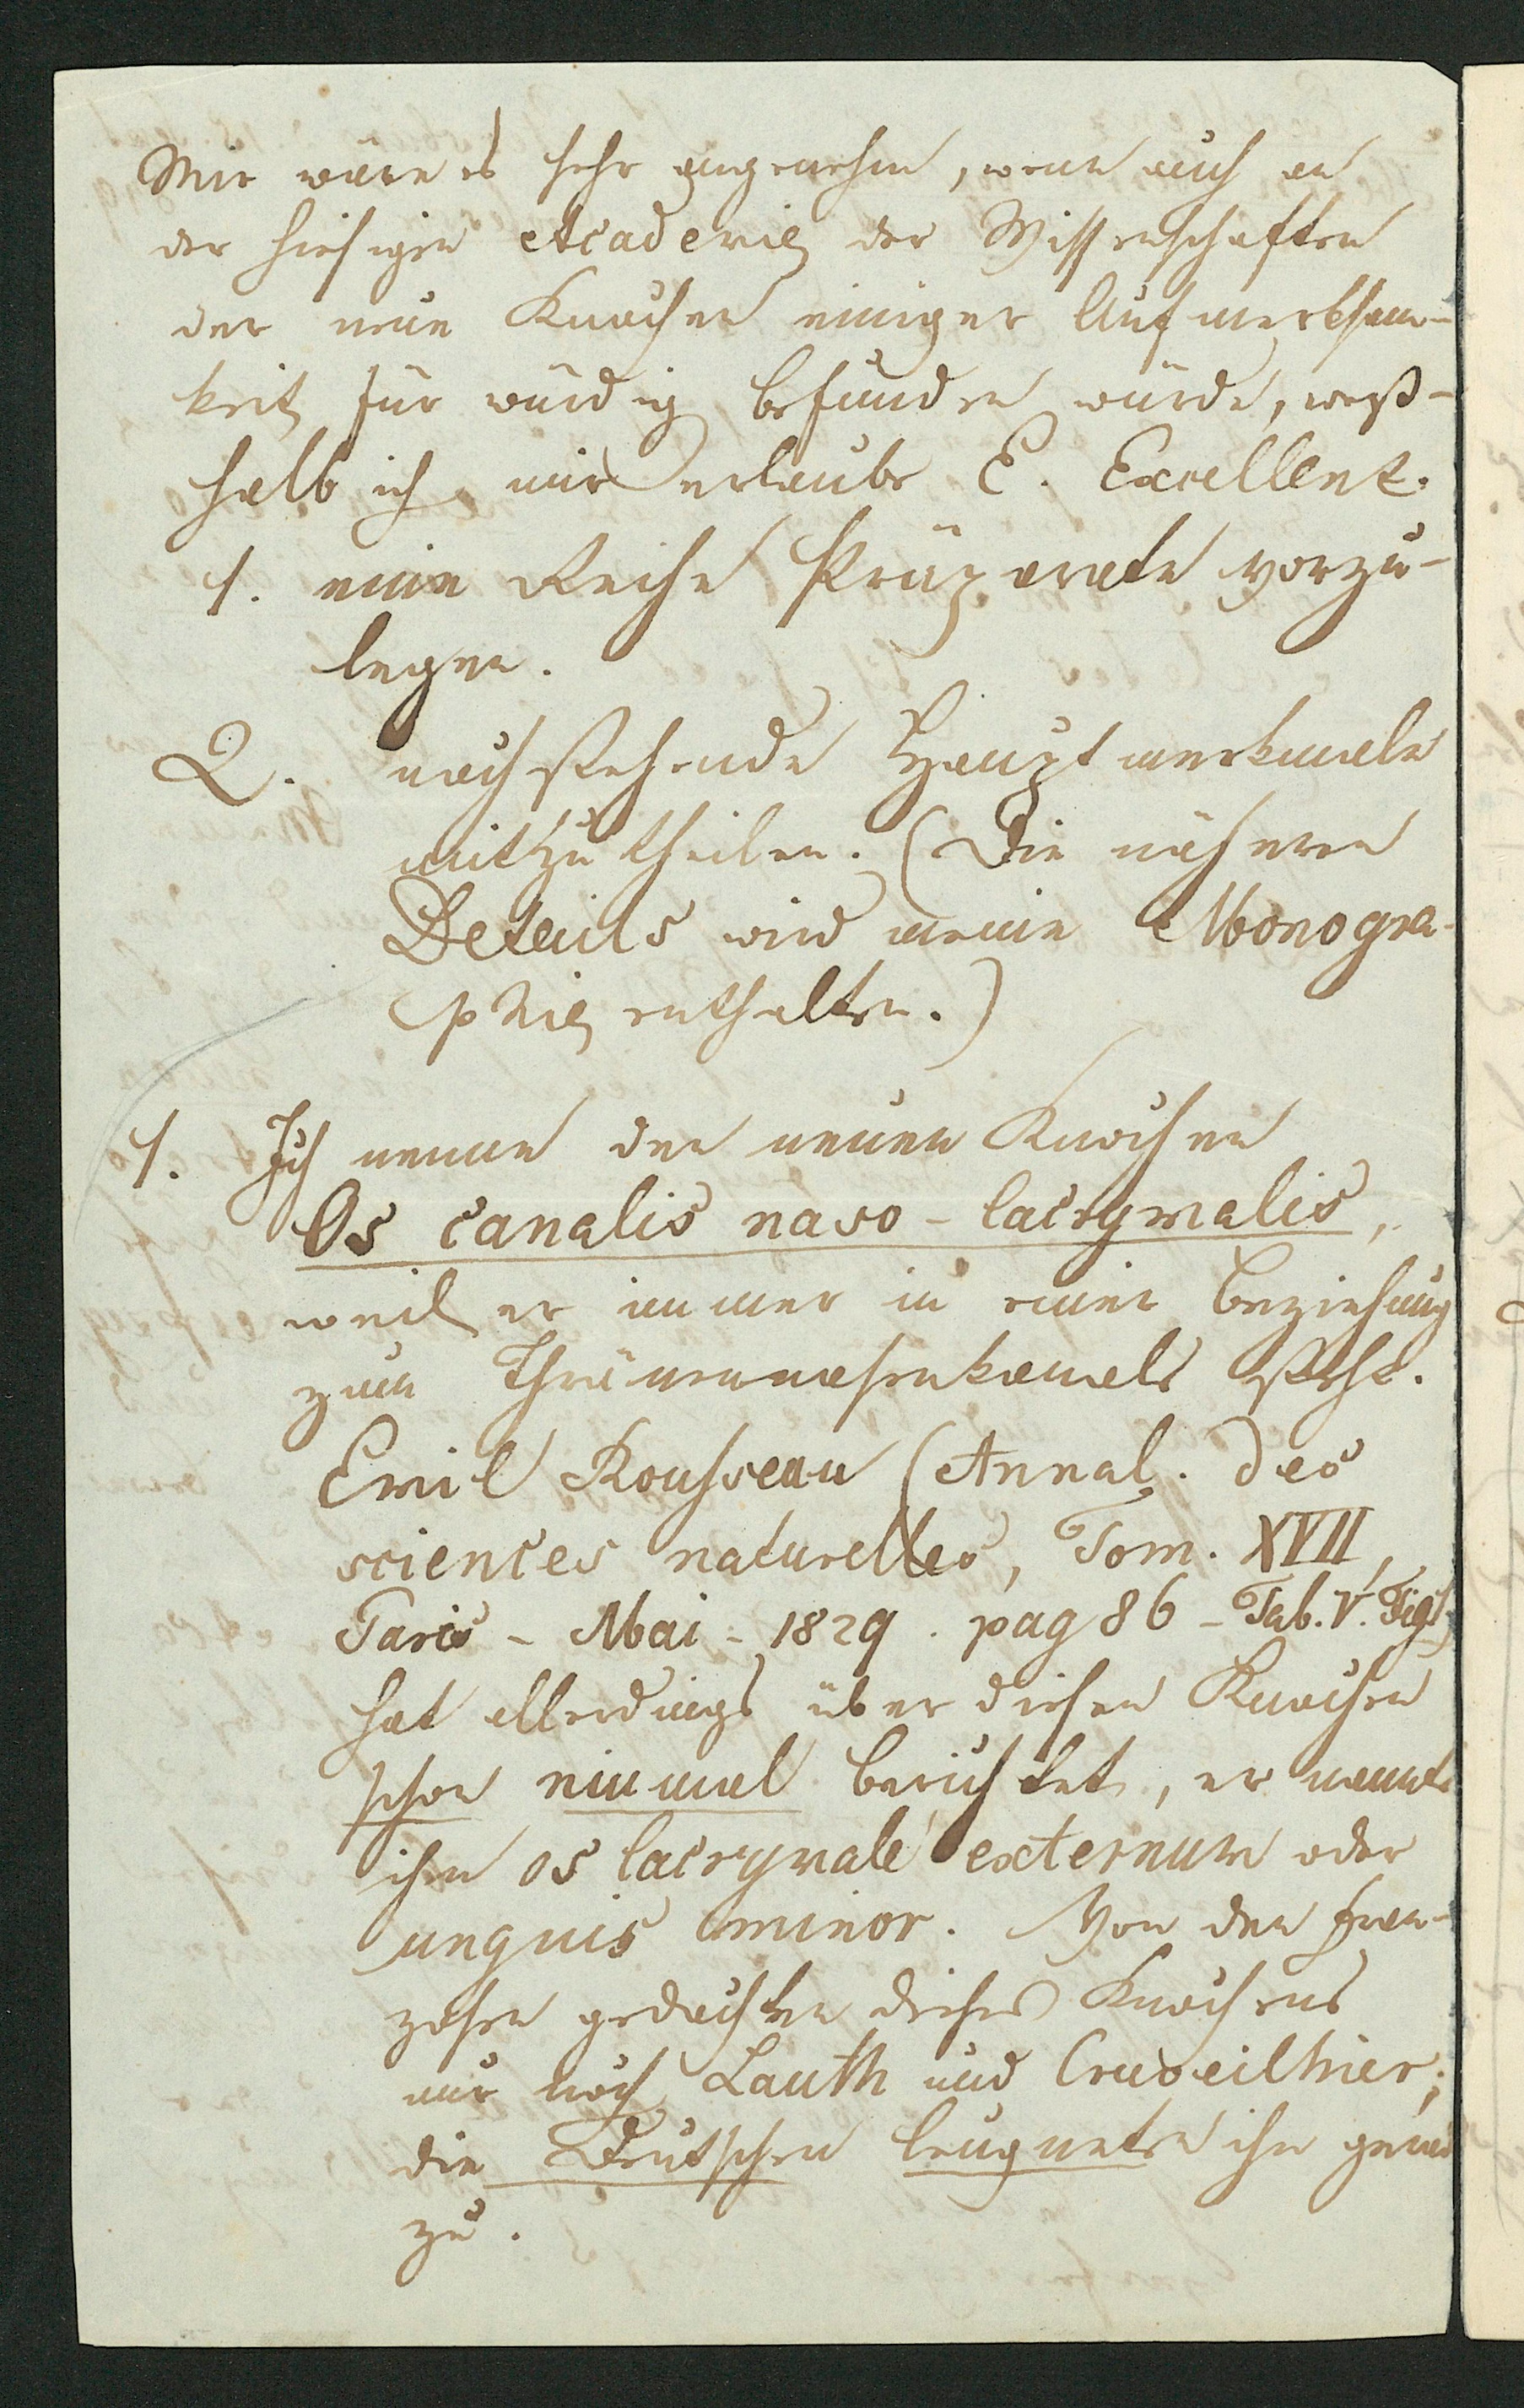 Mir wäre es sehr angenehm, wenn auch an
der hiesigen Academie der Wissenschaften
der neue Knochen einiger Aufmerksam-
keit für würdig befunden würde, weß-
halb ich mir erlaube E. Excellenz.
1. eine Reihe Präparate vorzu-
legen.
2. nachstehende Hauptmerkmale
mitzutheilen. (Die näheren
Details wird meine Monogra-
phie enthalten.)
1. Ich nenne den neuen Knochen
Os canalis naso-lacrymalis,
weil er immer in einer Beziehung
zum Thränennasenkanale steht.
Emil Rousseau (Annal. des
sciences naturelles, Tom. XVII,
Paris - Mai - 1829. pag 86 - Tab. V. Fig 1)
hat allerdings über diesen Knochen
schon einmal berichtet, er nannte
ihn os lacrymale externum oder
unguis minor. Von den Fran-
zosen gedachten dieses Knochens
nur noch Lauth und Cruveilhier;
die Deutschen leugneten ihn gerade
zu.